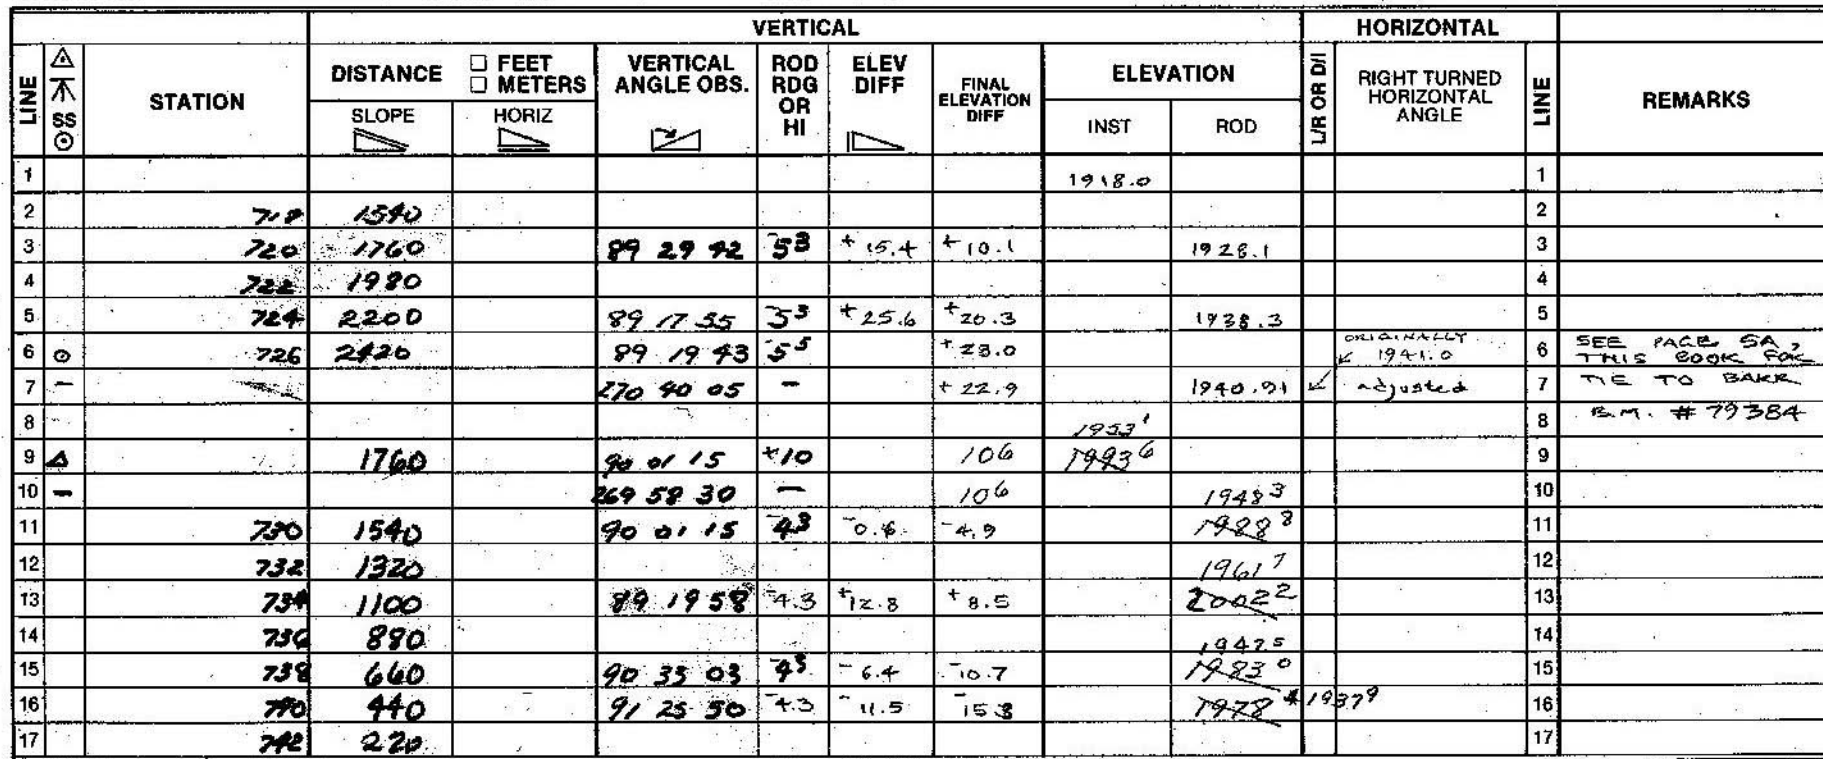 VERTICAL HORIZONTAL
LINE SS STATION DISTANCE ☐ FEET ☐ METERS SLOPE HORIZ VERTICAL ANGLE OBS. ROD RDG OR HI ELEV DIFF FINAL ELEVATION DIFF ELEVATION INST ROD L/R OR D/I RIGHT TURNED HORIZONTAL ANGLE LINE REMARKS
1 1918.0 1
2 718 1540 2
3 720 1760 89 29 42 -5³ +15.4 +10.1 1928.1 3
4 722 1980 4
5 724 2200 89 17 55 -5³ +25.6 +20.3 1938.3 5
6 ⊙ 726 2420 89 19 43 -5⁵ +23.0 ORIGINALLY 1941.0 6 SEE PAGE 5A, THIS BOOK FOR
7 - 270 40 05 - +22.9 1940.91 adjusted 7 TIE TO BAKR
8 1953¹ 8 B.M. # 79384
9 △ 1760 90 01 15 +10 10⁶ 1993⁶ 9
10 - 269 58 30 - 10⁶ 1948³ 10
11 730 1540 90 01 15 -4³ -0.6 -4.9 1988⁸ 11
12 732 1320 1961⁷ 12
13 734 1100 89 19 58 -4.3 +12.8 +8.5 2002² 13
14 736 880 1942⁵ 14
15 738 660 90 33 03 -4³ -6.4 -10.7 1983⁰ 15
16 740 440 91 25 50 -4.3 -11.5 -15.8 1978⁴ 1937⁹ 16
17 742 220 17